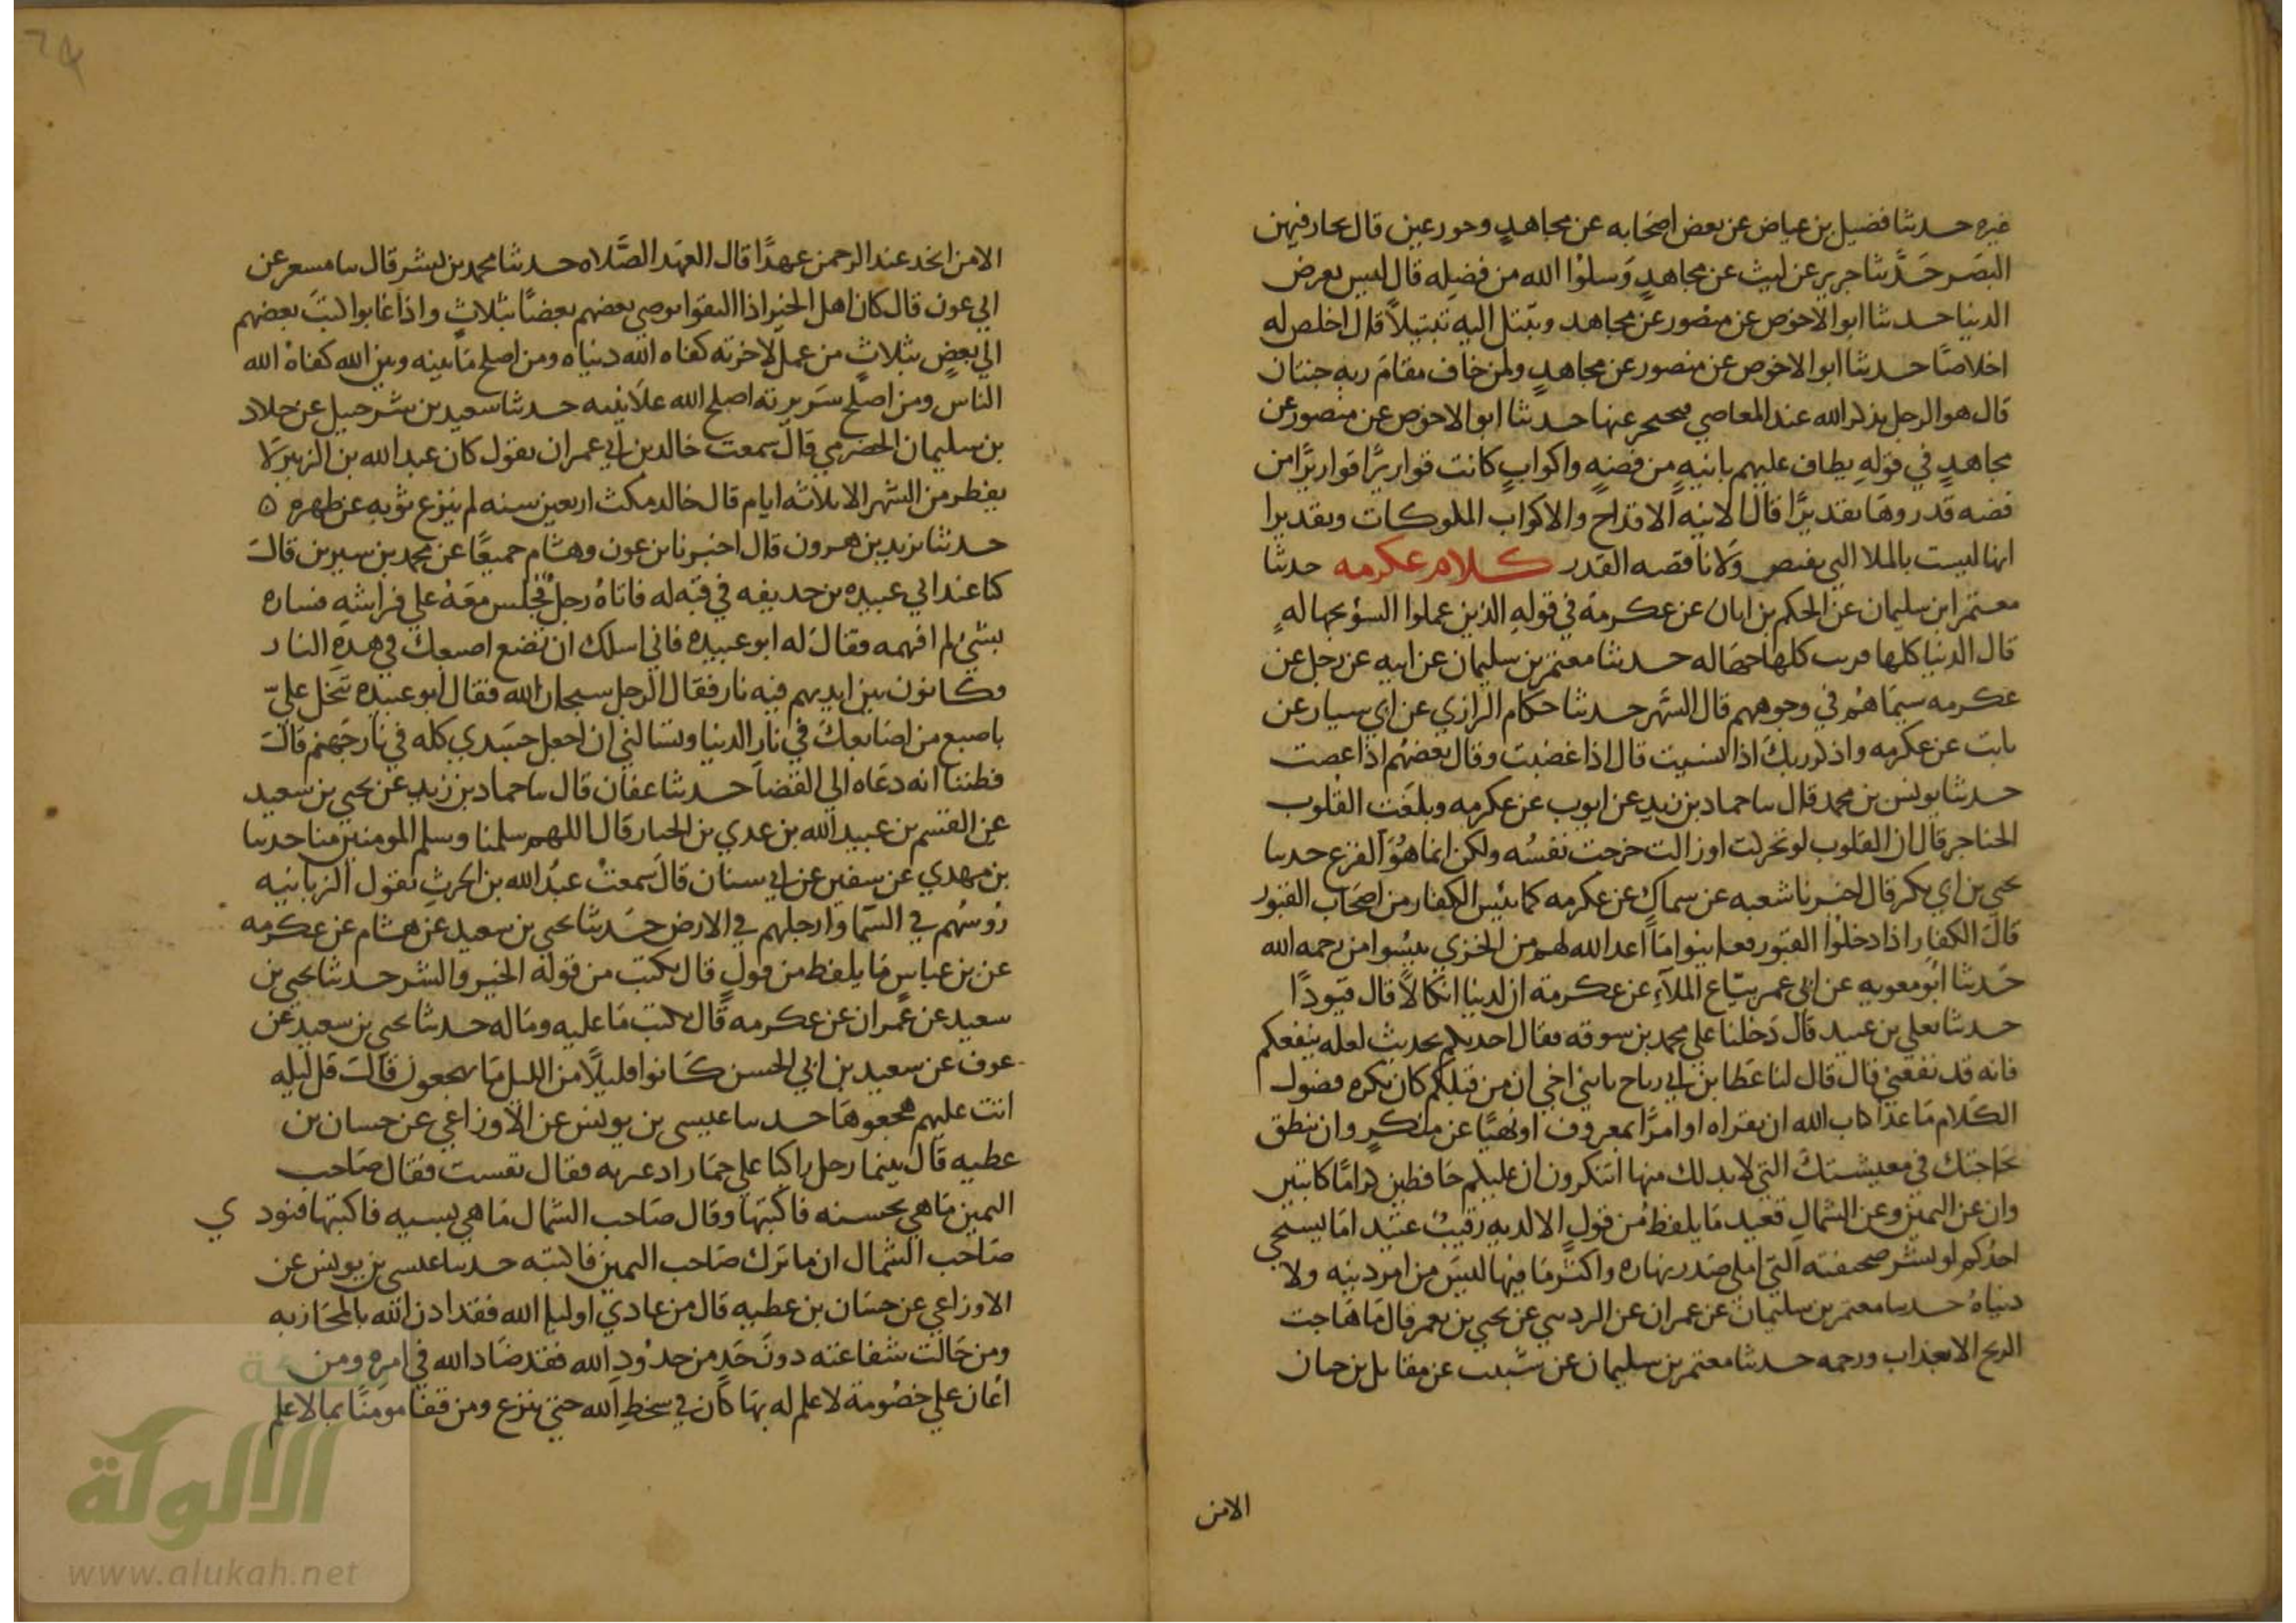 غيره حدثنا فضيل بن عياض عن بعض اصحابه عن مجاهد وحور عين قال يحار فيهن
البصر حدثنا جرير عن ليث عن مجاهد وسلوا الله من فضله قال ليس بعرض
الدنيا حدثنا ابو الاحوص عن منصور عن مجاهد وتبتل اليه تبتيلا قال اخلص له
اخلاصا حدثنا ابو الاحوص عن منصور عن مجاهد ولمن خاف مقام ربه جنتان
قال هو الرجل يذكر الله عند المعاصي فيحجر عنها حدثنا ابو الاحوص عن منصور عن
مجاهد في قوله يطاف عليهم بانيه من فضه واكواب كانت قواريرا قواريرا من
فضه قدروها تقديرا قال الانيه الاقداح والاكواب الملوكات وتقديرا
انها ليست بالملا التي تفيض ولا ناقصه القدر كلام عكرمه حدثنا
معتمر ابن سليمان عن الحكم بن ابان عن عكرمة في قوله الذين عملوا السؤ بجهاله
قال الدنيا كلها قريب كلها جهاله حدثنا معتمر بن سليمان عن ابيه عن رجل عن
عكرمه سيماهم في وجوههم قال السهر حدثنا حكام الرازي عن ابي سيار عن
ثابت عن عكرمه واذكر ربك اذا نسيت قال اذا غضبت وقال بعضهم اذا عصت
حدثنا يونس بن محمد قال سا حماد بن زيد عن ايوب عن عكرمه وبلغت القلوب
الحناجر قال ان القلوب لو تحركت او زالت خرجت نفسه ولكن انما هو الفزع حدثنا
يحيي بن ابي بكر قال اخبرنا شعبه عن سماك عن عكرمه كما يئس الكفار من اصحاب القبور
قال الكفار اذا دخلوا القبور فعاينوا ما اعد الله لهم من الخزي يئسوا من رحمه الله
حدثنا ابو معويه عن ابي عمر بياع الملاء عن عكرمة ان لدينا انكالا قال قيودا
حدثنا يعلي بن عبيد قال دخلنا علي محمد بن سوقه فقال احدثكم بحديث لعله ينفعكم
فانه قد نفعني قال قال لنا عطا بن ابي رباح يا بني اخي ان من قبلكم كان يكره فضول
الكلام ما عدا كتاب الله ان تقراه او امرا بمعروف او نهيا عن منكر وان تنطق
بحاجتك في معيشتك التي لا بد لك منها اتنكرون ان عليكم حافظين كراما كاتبين
وان عن اليمين وعن الشمال قعيد ما يلفظ من قول الا لديه رقيب عتيد اما يستحي
احدكم لو نشر صحيفته التي املي صدر نهاره واكثر ما فيها ليس من امر دينه ولا
دنياه حدثنا معتمر بن سليمان عن عمران عن الردسي عن يحيي بن يعمر قال ما هاجت
الريح الا بعذاب ورحمه حدثنا معتمر بن سليمان عن شبيب عن مقاتل بن حيان
الامن
الا من اتخذ عند الرحمن عهدا قال العهد الصلاه حدثنا محمد بن بشر قال سا مسعر عن
ابي عون قال كان اهل الخير اذا التقوا يوصي بعضهم بعضا بثلاث واذا غابوا كتب بعضهم
الي بعض بثلاث من عمل لاخرته كفاه الله دنياه ومن اصلح ما بينه وبين الله كفاه الله
الناس ومن اصلح سريرته اصلح الله علانيته حدثنا سعيد بن شرحبيل عن خلاد
بن سليمان الحضرمي قال سمعت خالد بن ابي عمران يقول كان عبد الله بن الزبير لا
يفطر من الشهر الا ثلاثه ايام قال خالد مكث اربعين سنه لم ينزع ثوبه عن ظهره ه
حدثنا يزيد بن هرون قال اخبرنا بن عون وهشام جميعا عن محمد بن سيرين قال
كنا عند ابي عبيده بن حذيفه في قبه له فاتاه رجل فجلس معه علي فراشه فساره
بشئ لم افهمه فقال له ابو عبيده فاني اسلك ان تضع اصبعك في هذه النار
وكانون بين ايديهم فيه نار فقال الرجل سبحان الله فقال ابو عبيده تبخل علي
باصبع من اصابعك في نار الدنيا وتسالني ان اجعل جسدي كله في نار جهنم قال
فظننا انه دعاه الي القضا حدثنا عفان قال سا حماد بن زيد عن يحيي بن سعيد
عن القسم بن عبيد الله بن عدي بن الخيار قال اللهم سلمنا وسلم المومنين منا حدثنا
بن مهدي عن سفين عن ابي سنان قال سمعت عبد الله بن الحرث يقول الزبانيه
روسهم في السما وارجلهم في الارض حدثنا يحيي بن سعيد عن هشام عن عكرمه
عن بن عباس ما يلفظ من قول قال يكتب من قوله الخير والشر حدثنا يحيي بن
سعيد عن عمران عن عكرمه قال يكتب ما عليه وماله حدثنا يحيي بن سعيد عن
عوف عن سعيد بن ابي الحسن كانوا قليلا من الليل ما يهجعون قال قل ليله
اتت عليهم هجعوها حدثنا عيسي بن يونس عن الاوزاعي عن حسان بن
عطيه قال بينما رجل راكبا علي حمار اذ عثر به فقال تعست فقال صاحب
اليمين ما هي بحسنه فاكتبها وقال صاحب الشمال ما هي بسيه فاكتبها فنودي
صاحب الشمال ان ما ترك صاحب اليمين فاكتبه حدثنا عيسي بن يونس عن
الاوزاعي عن حسان بن عطيه قال من عادي اوليا الله فقد اذن الله بالمحاربه
ومن حالت شفاعته دون حد من حدود الله فقد ضاد الله في امره ومن
اعان علي خصومة لا علم له بها كان في سخط الله حتي ينزع ومن قفا مومنا بما لا علم
الالوكة
www.alukah.net